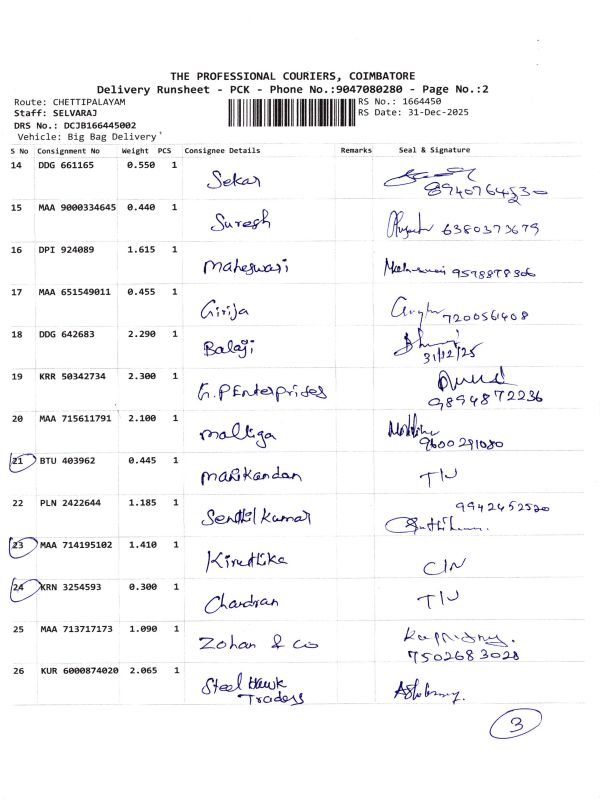 THE PROFESSIONAL COURIERS, COIMBATORE
Delivery Runsheet - PCK - Phone No.:9047080280 - Page No.:2
Route: CHETTIPALAYAM RS No.: 1664450
Staff: SELVARAJ RS Date: 31-Dec-2025
DRS No.: DCJB166445002
Vehicle: Big Bag Delivery
S No Consignment No Weight PCS Consignee Details Remarks Seal & Signature
14 DDG 661165 0.550 1
Sekar
15 MAA 9000334645 0.440 1
Suresh 6380373679
16 DPI 924089 1.615 1
Maheswari 9578878306
17 MAA 651549011 0.455 1
Girija 7200561408
18 DDG 642683 2.290 1
Balaji
31/12/25
19 KRR 50342734 2.300 1
G.P Enterprises
9894872236
20 MAA 715611791 2.100 1
Malliga
9600291080
21 BTU 403962 0.445 1
Manikandan T/N
22 PLN 2422644 1.185 1
9942452520
Senthil Kumar
23 MAA 714195102 1.410 1
Kiruthika C/N
24 KRN 3254593 0.300 1
Chandran T/N
25 MAA 713717173 1.090 1
Zohan & Co
7502683028
26 KUR 6000874020 2.065 1
Steel Hawk
Traders
3